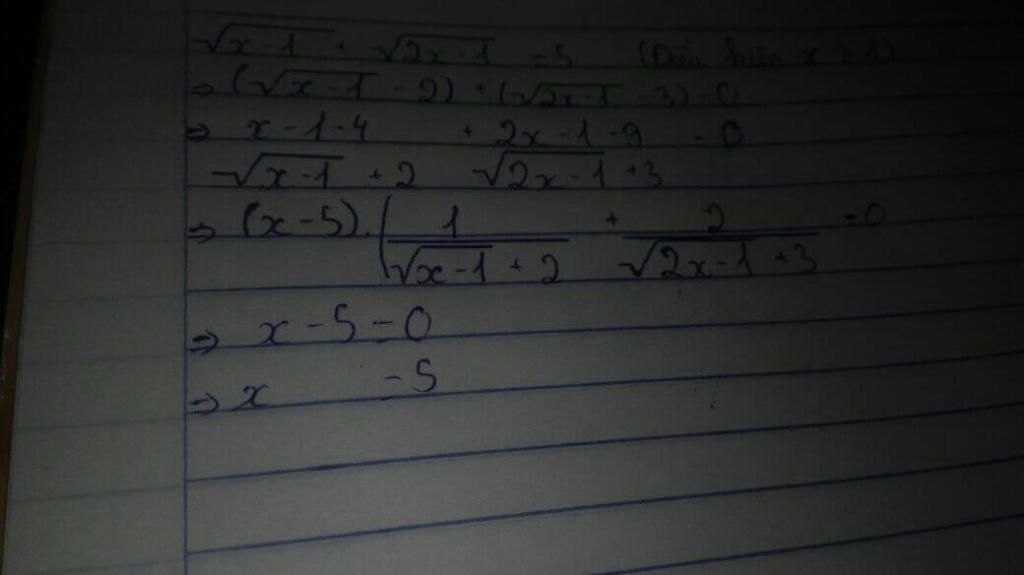 √x-1 + √2x-1 = 5 (Điều kiện x ≥ 1)
⇒ (√x-1 - 2) + (√2x-1 - 3) = 0
⇒ x-1-4 + 2x-1-9 = 0
√x-1 + 2 √2x-1 + 3
⇒ (x-5).( 1 + 2 = 0
√x-1 + 2 √2x-1 + 3
⇒ x - 5 = 0
⇒ x = 5